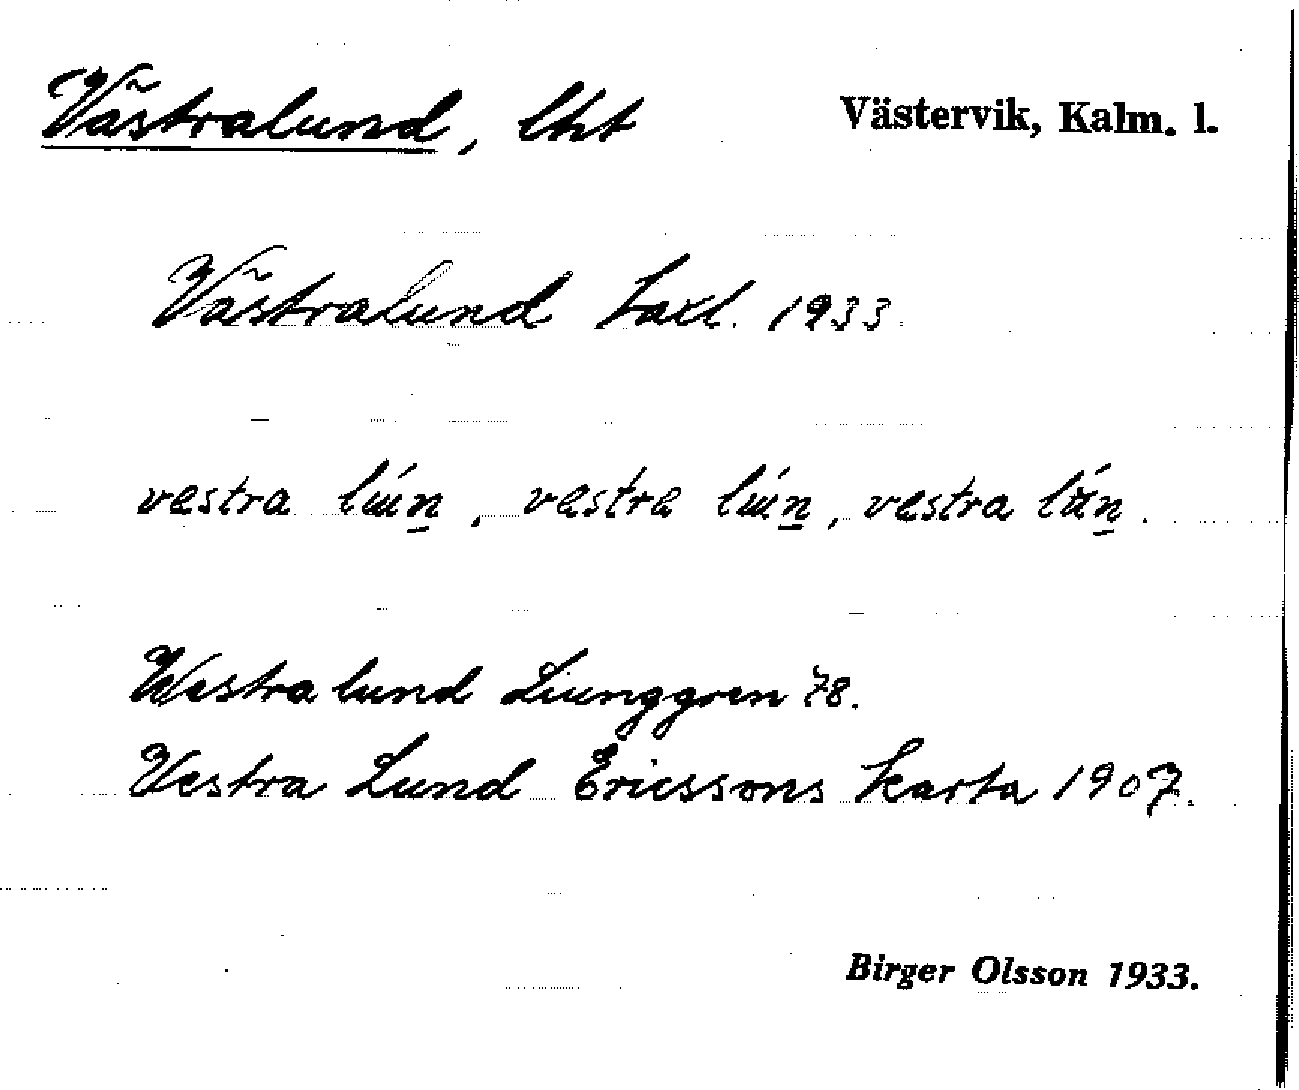 Västralund, lht Västervik, Kalm. l.
Västralund taxl. 1933.
vestra lún̲, vestra lún̲, vestra lún̲.
Westra lund Liunggren 78.
Vestra Lund Ericssons karta 1907.
Birger Olsson 1933.